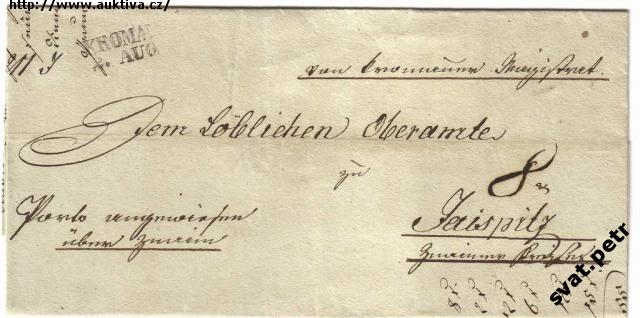 http://www.auktiva.cz/
KROMAU
7. AUG
von Kromauer Magistrat.
Dem Löblichen Oberamte
zu
8
Porto angewiesen
über Znaim
Jaispitz
Znaimer Kreises
svat.petr